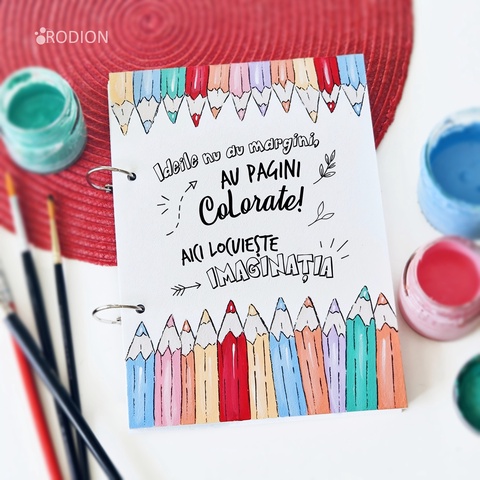 RODION
Ideile nu au margini,
AU PAGINI
Colorate!
AICI LOCUIEȘTE
IMAGINAȚIA